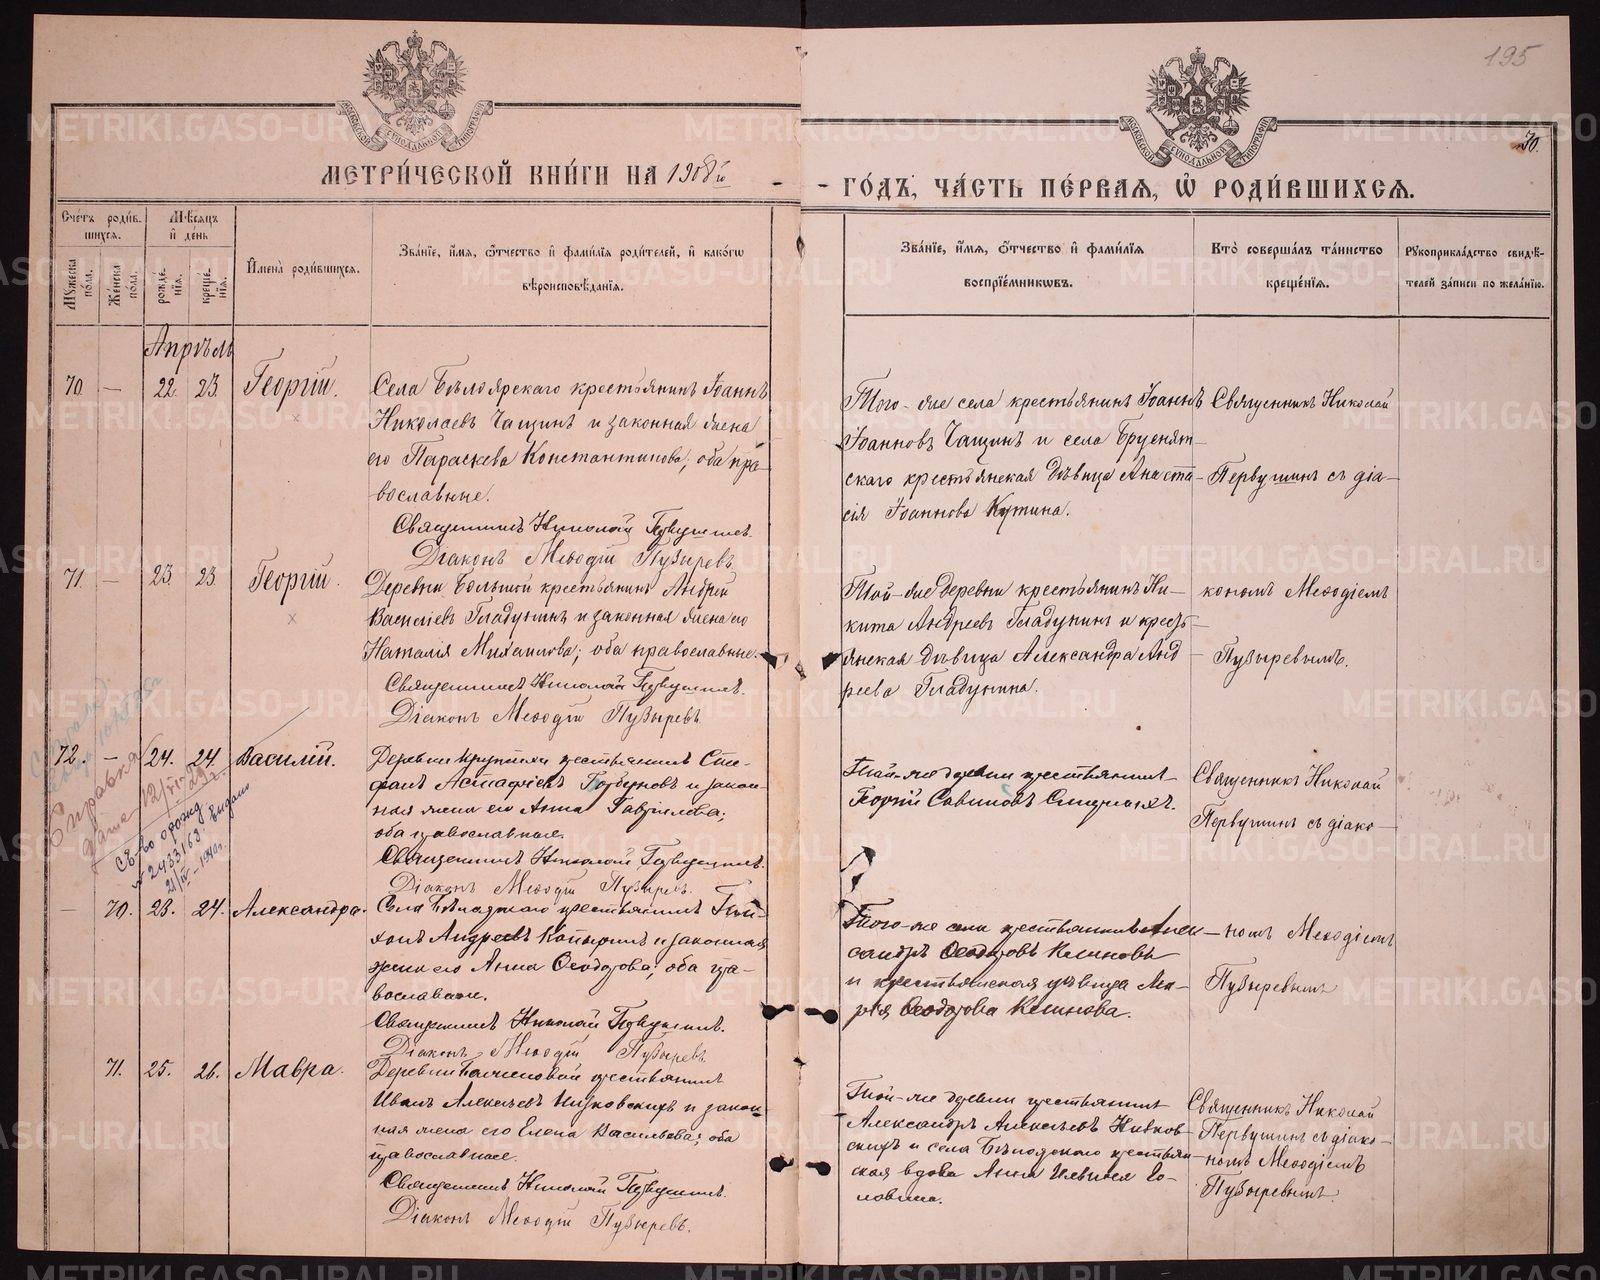 195
70.
МЕТРИ́ЧЕСКОЙ КНИ́ГИ НА 1908й
ГО́ДЪ, ЧА́СТЬ ПЕ́РВАЯ, Ѡ РОДИ́ВШИХСЯ.
Сче́тъ роди́вшихся.
Му́жеска по́ла.
Же́нска по́ла.
Мѣ́сяцъ и҆ де́нь
рожде́нія.
креще́нія.
И҆мена̀ роди́вшихся.
Зва́ніе, и҆́мя, ѻ҆́тчество и҆ фами́лія роди́телей, и҆ како́гѡ
вѣроисповѣ́данія.
Зва́ніе, и҆́мя, ѻ҆́тчество и҆ фами́лія
воспріе́мниковъ.
Кто̀ соверша́лъ та́инство
креще́нія.
Рукоприкла́дство свидѣ́телей за́писи по жела́нію.
Апрѣль
70 — 22. 23. Георгій.
Села Бѣлоярскаго крестьянинъ Іоаннъ
Николаевъ Чащинъ и законная жена
его Параскева Константинова; оба пра-
вославные.
Священникъ Николай Первушинъ.
Діаконъ Меѳодій Пузыревъ.
Того-же села крестьянинъ Іоаннъ
Іоанновъ Чащинъ и села Бруснят-
скаго крестьянская дѣвица Анаста-
сія Іоаннова Кутина.
Священникъ Николай
Первушинъ съ діа-
71. — 23. 23 Георгій.
Деревни Большой крестьянинъ Андрей
Василіевъ Гладунинъ и законная жена его
Наталія Михаилова; оба православные.
Священникъ Николай Первушинъ.
Діаконъ Меѳодій Пузыревъ
Той-же деревни крестьянинъ Ни-
кита Андреевъ Гладунинъ и кресть-
янская дѣвица Александра Анд
реева Гладунина.
кономъ Меѳодіемъ
Пузыревымъ.
72. — 24. 24. Василій.
Деревни крестьянинъ Сте-
фанъ Астафіевъ Горбуновъ и закон-
ная жена его Анна Гавріилова;
оба православные.
Священникъ Николай Первушинъ.
Діаконъ Меѳодій Пузыревъ.
Той-же деревни крестьянинъ
Георгій Савиновъ
Священникъ Николай
Первушинъ съ діако-
Справка
дана 12/
св-во о рожд
№ 2433163 выдано
21/IV-1940г.
— 70. 23. 24. Александра.
Села Бѣлоярскаго крестьянинъ
Андреевъ и законная
жена его Анна Ѳеодорова; оба пра-
вославные.
Священникъ Николай Первушинъ.
Діаконъ Меѳодій Пузыревъ
Того-же села крестьянинъ Алек-
сандръ Ѳеодоровъ
и крестьянская дѣвица Ма-
рія Ѳеодорова
номъ Меѳодіемъ
Пузыревымъ
71. 25. 26. Мавра.
Деревни крестьянинъ
Иванъ Алексѣевъ и закон-
ная жена его Елена Васильева; оба
православные.
Священникъ Николай Первушинъ.
Діаконъ Меѳодій Пузыревъ.
Той-же деревни крестьянинъ
Александръ Алексѣевъ
и села Бѣлоярскаго крестьян-
ская вдова Анна Ильина Го-
ловина.
Священникъ Николай
Первушинъ съ діако-
номъ Меѳодіемъ
Пузыревымъ.
METRIKI.GASO-URAL.RU